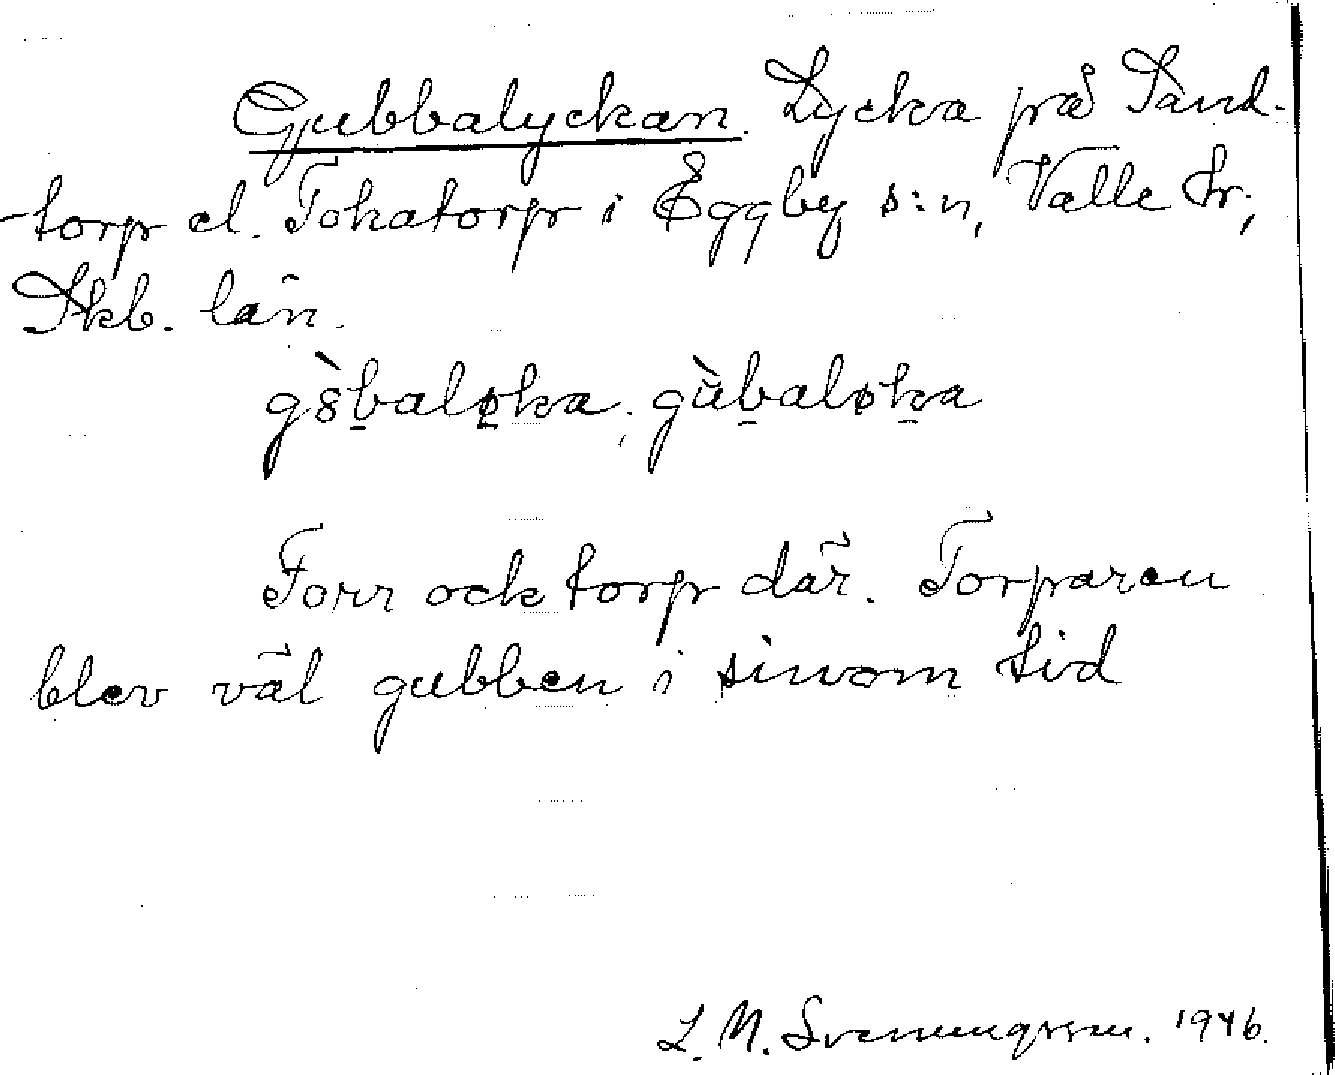 Gubbalyckan. Lycka på Sand-
torp el. Tokatorp i Eggby s:n, Valle hr,
Skb. län.
gȣ̀balø̱ka, gùbaløka
Förr ock torp där. Torparen
blev väl gubben i sinom tid
L. N. Svenungsson. 1946.